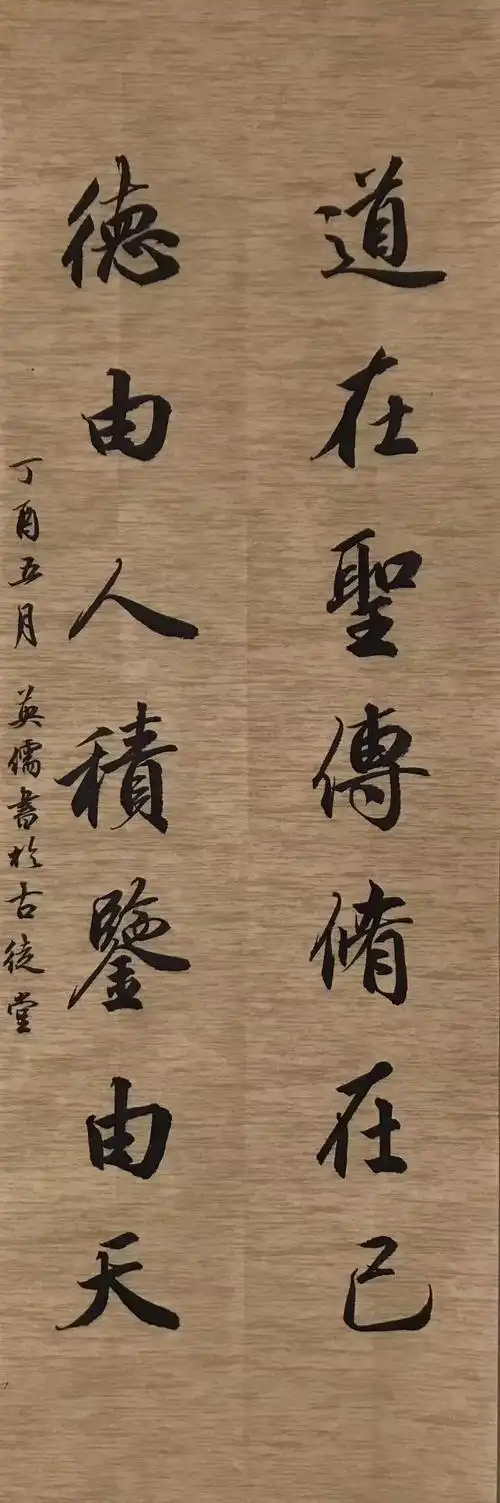 道在聖傳脩在己
德由人積鑒由天
丁酉五月 英儒書於古徒堂